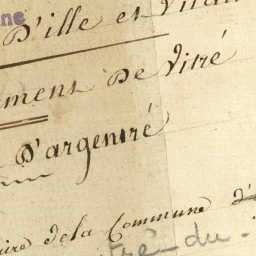 ne
D'ille et Vilai
ement De Vitré
D'argentré
aire de la Commune d'
tré-du-